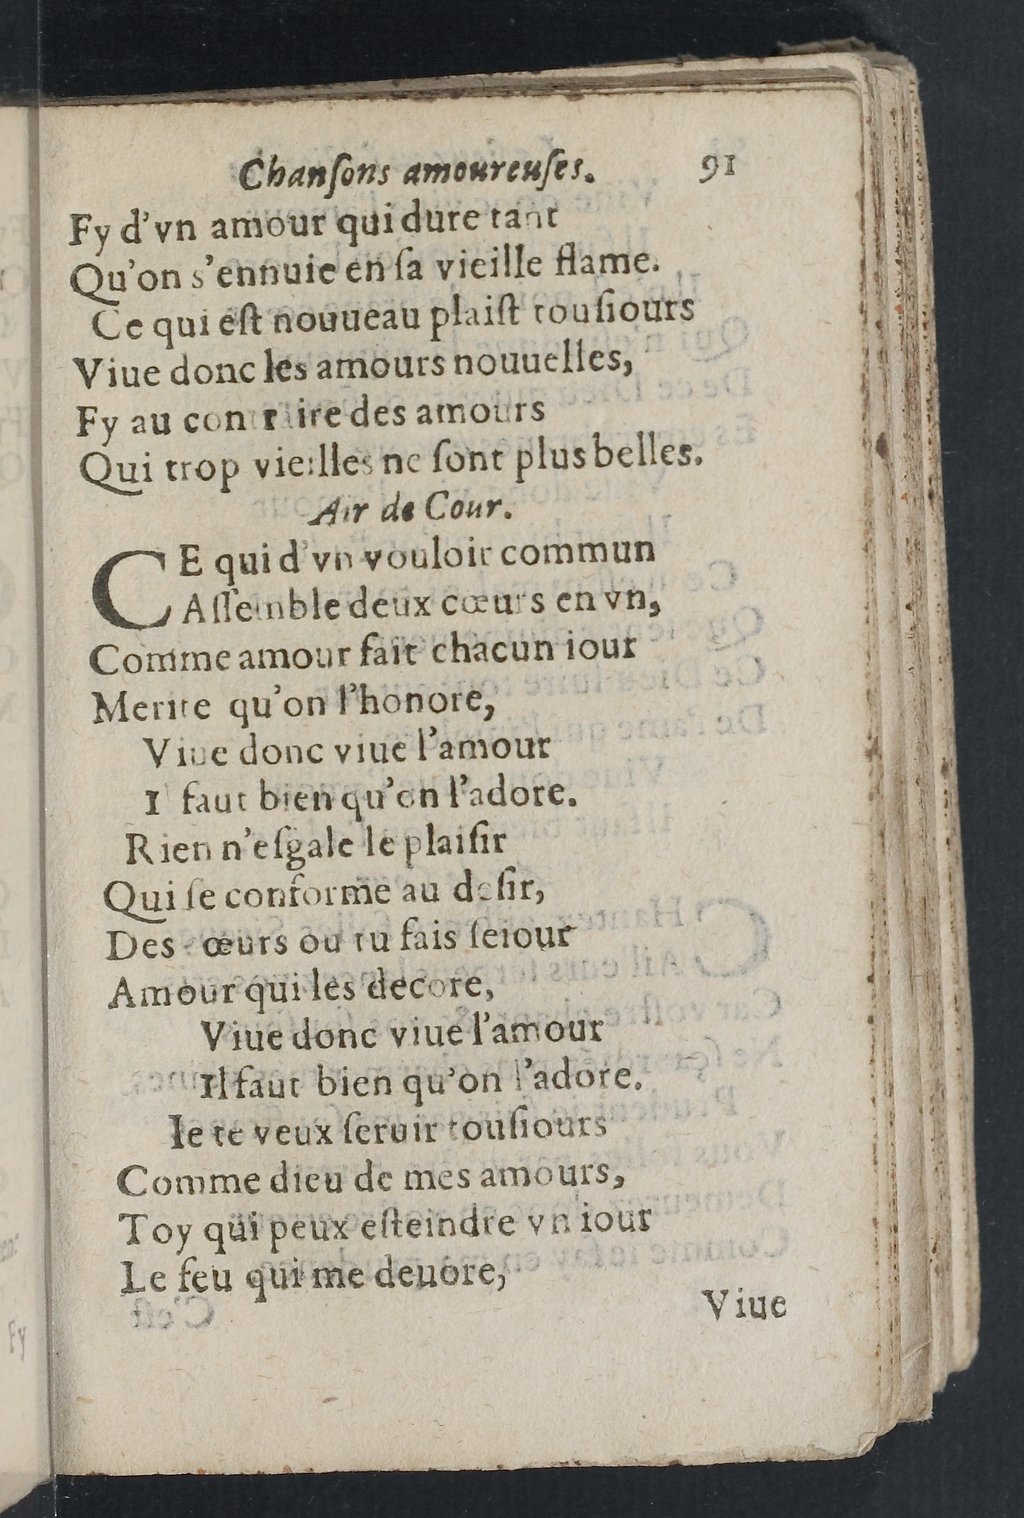 Chanſons amoureuſes. 91
Fy d'vn amour qui dure tant
Qu'on s'ennuie en ſa vieille flame.
Ce qui eſt nouueau plaiſt touſiours
Viue donc les amours nouuelles,
Fy au contraire des amours
Qui trop vieilles ne ſont plus belles.
Air de Cour.
CE qui d'vn vouloir commun
Aſſemble deux cœurs en vn,
Comme amour fait chacun iour
Merite qu'on l'honore,
Viue donc viue l'amour
Il faut bien qu'on l'adore.
Rien n'eſgale le plaiſir
Qui ſe conforme au deſir,
Des cœurs ou tu fais ſeiour
Amour qui les decore,
Viue donc viue l'amour
Il faut bien qu'on l'adore.
Ie te veux ſeruir touſiours
Comme dieu de mes amours,
Toy qui peux eſteindre vn iour
Le feu qui me deuore,
Viue